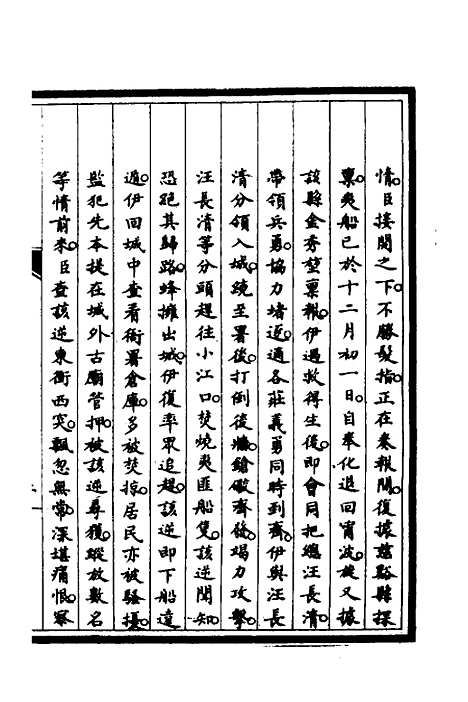 情。臣接閱之下。不勝髮指。正在奏報間。復據慈谿縣探
稟。夷船已於十二月初一日。自奉化退回甯波。旋又據
該縣金秀堃稟報。伊遇救得生後。即會同把總汪長清。
帶領兵勇。協力堵逆。適各莊義勇同時到齊。伊與汪長
清分領入城。繞至署後。打倒後牆。鎗礮齊發。竭力攻擊。
汪長清等分頭趕往小江口。焚燒夷匪船隻。該逆聞知
恐跑其歸路。蜂擁出城。伊復率眾追趕。該逆即下船遠
遁。伊回城中查看衙署倉庫。多被焚掠。居民亦被騷擾。
監犯先本提在城外古廟管押。被該逆尋獲。蹤放數名
等情前來。臣查該逆東衝西突。飄忽無常。深堪痛恨。察